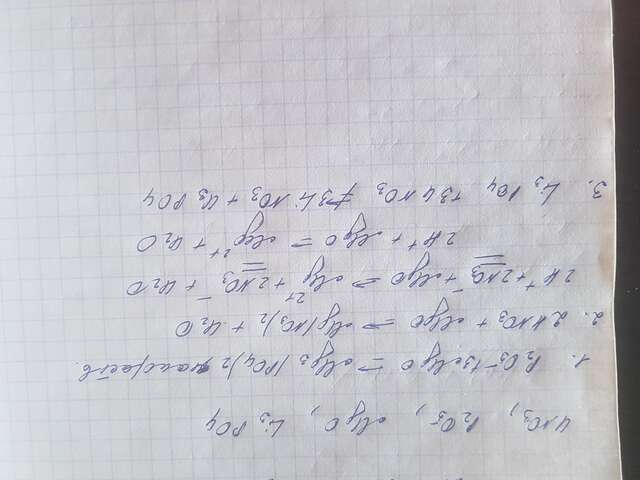 HNO3, P2O5, MgO, Li3PO4
1. P2O5 + 3MgO = Mg3(PO4)2 малораств.
2. 2HNO3 + MgO = Mg(NO3)2 + H2O
2H⁺ + 2NO3⁻ + MgO = Mg²⁺ + 2NO3⁻ + H2O
2H⁺ + MgO = Mg²⁺ + H2O
3. Li3PO4 + 3HNO3 ≠ 3LiNO3 + H3PO4